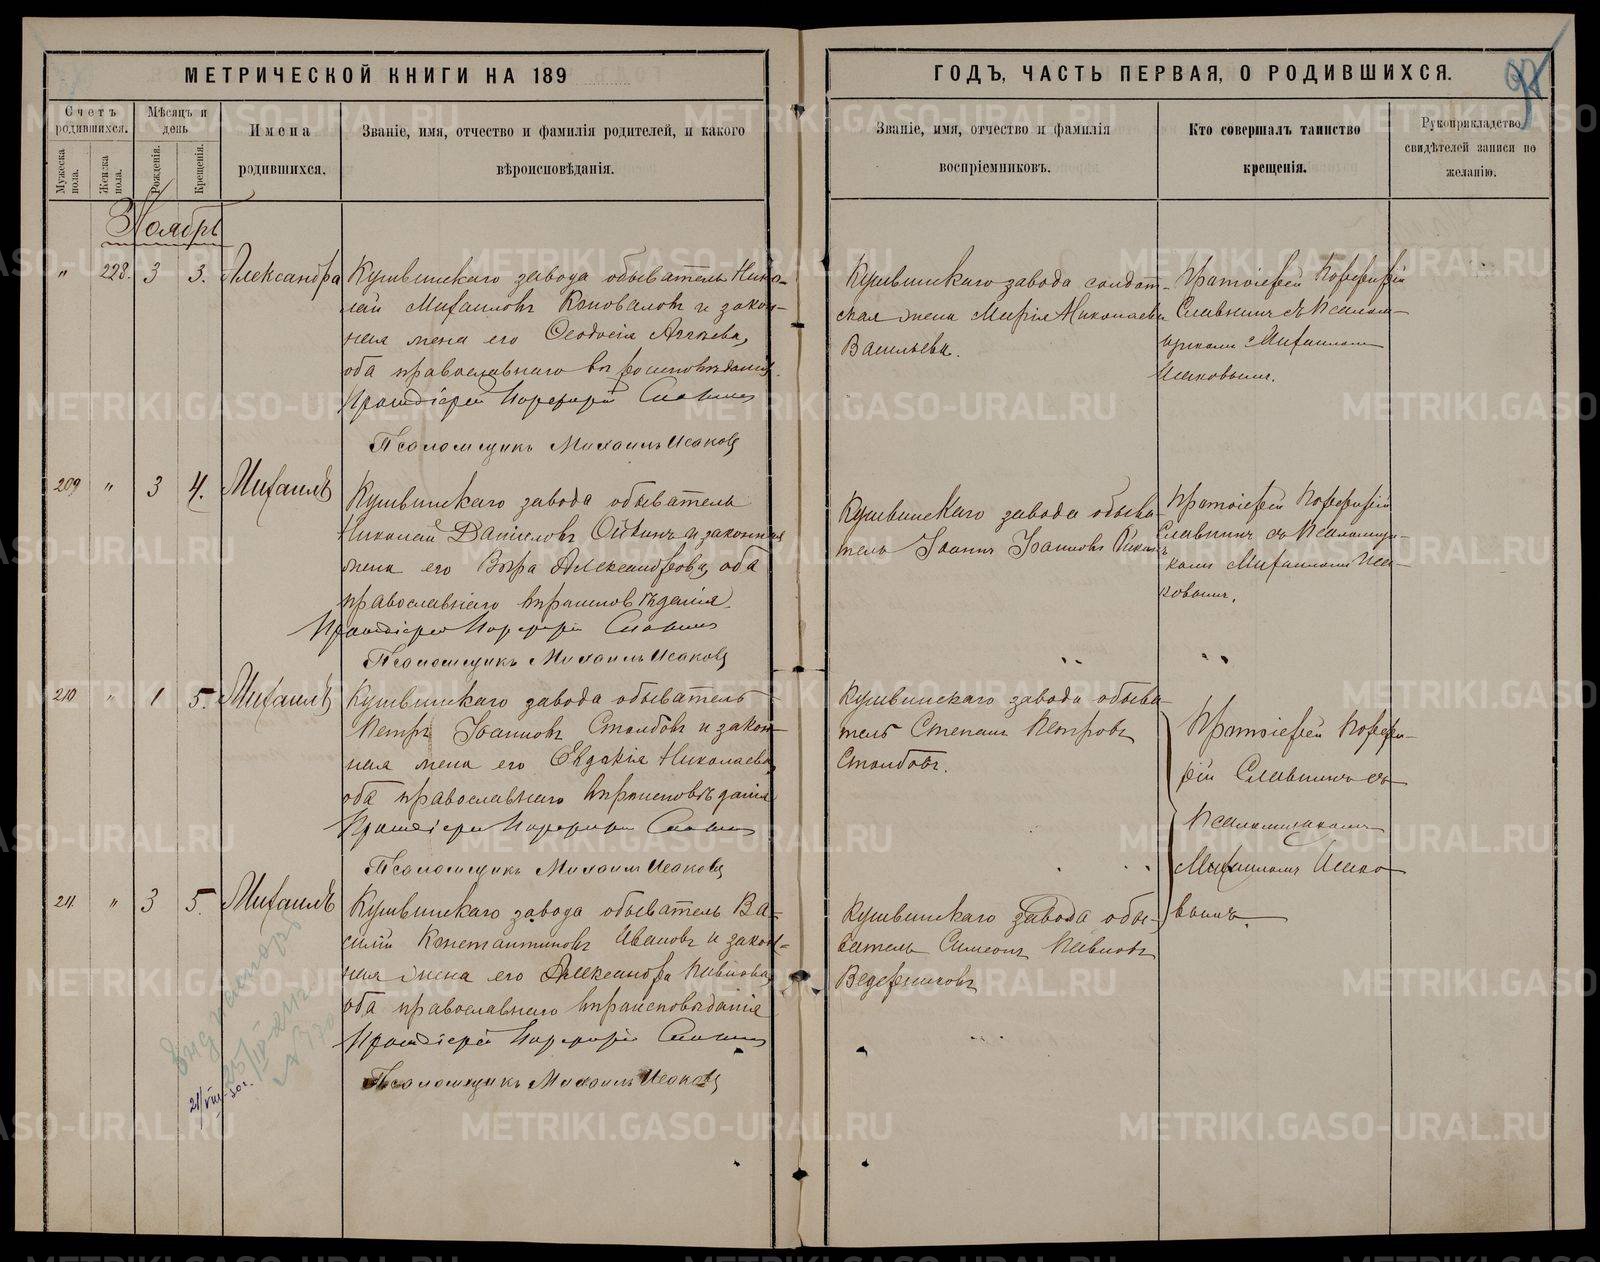 МЕТРИЧЕСКОЙ КНИГИ НА 189
ГОДЪ, ЧАСТЬ ПЕРВАЯ, О РОДИВШИХСЯ.
Счетъ родившихся.
Мужеска пола.
Женска пола.
Мѣсяцъ и день
Рожденія.
Крещенія.
Имена родившихся.
Званіе, имя, отчество и фамилія родителей, и какого
вѣроисповѣданія.
Званіе, имя, отчество и фамилія
воспріемниковъ.
Кто совершалъ таинство
крещенія.
Рукоприкладство
свидѣтелей записи по
желанію.
Ноябрь
" 228. 3 3. Александра
Кушвинскаго завода обыватель Нико-
лай Михаиловъ Коноваловъ и закон-
ная жена его Ѳеодосія
оба православнаго вѣроисповѣданія.
Протоіерей Порфирій Славнинъ
Псаломщикъ Михаилъ Исаковъ
Кушвинскаго завода солдат-
ская жена Марія Николаева
Васильева.
Протоіерей Порфирій
Славнинъ съ Псалом-
щикомъ Михаиломъ
Исаковымъ.
209 " 3 4. Михаилъ
Кушвинскаго завода обыватель
Николай Даніиловъ и законная
жена его Вѣра Александрова, оба
православнаго вѣроисповѣданія.
Протоіерей Порфирій Славнинъ
Псаломщикъ Михаилъ Исаковъ
Кушвинскаго завода обыва-
тель Іоаннъ Іоанновъ
Протоіерей Порфирій
Славнинъ съ Псаломщи-
комъ Михаиломъ Иса-
ковымъ.
210 " 1 5. Михаилъ
Кушвинскаго завода обыватель
Петръ Іоанновъ Столбовъ и закон-
ная жена его Евдокія Николаева,
оба православнаго вѣроисповѣданія
Протоіерей Порфирій Славнинъ
Псаломщикъ Михаилъ Исаковъ
Кушвинскаго завода обыва-
тель Степанъ Петровъ
Столбовъ.
Протоіерей Порфи-
рій Славнинъ съ
Псаломщикомъ
Михаиломъ Исако-
вымъ
211 " 3 5. Михаилъ
Кушвинскаго завода обыватель Ва-
силій Константиновъ Ивановъ и закон-
ная жена его Александра Павлова,
оба православнаго вѣроисповѣданія
Протоіерей Порфирій Славнинъ
Псаломщикъ Михаилъ Исаковъ
Кушвинскаго завода обы-
ватель Симеонъ Павловъ
Ведерниковъ
METRIKI.GASO-URAL.RU